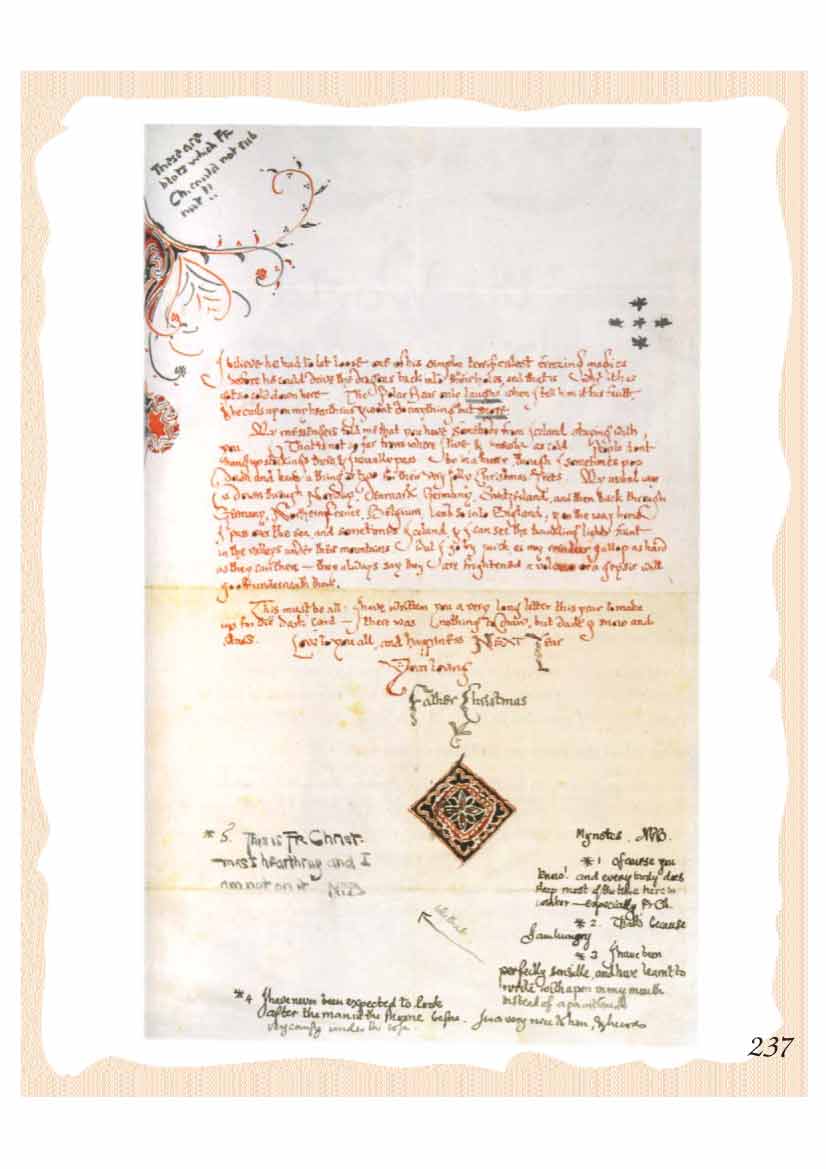 These are
blots which Fr
Ch. could not rub
out!!
I believe he had to let loose one of his simple terrificalest freezing magics
before he could drive the dragons back into their holes, and that is why it has
got so cold down here. The Polar Bear only laughs when I tell him it his fault
& he curls up on my hearthrug & won't do anything but snore.
My messengers told me that you have somebody from Iceland staying with
you. That is not so far from where I live & nearly as cold. People don't
hang up stockings there, & I usually pass by in a hurry, though I sometimes pop
down and leave a thing or two for their very jolly Christmas Trees. My usual way
is down through Norway, Denmark, Germany, Switzerland, and then back through
Germany, Northern France, Belgium, and so into England; & on the way home
I pass over the sea, and sometimes Iceland & I can see the twinkling lights faint
in the valleys under their mountains. But I go by quick as my reindeer gallop as hard
as they can there — they always say they are frightened a volcano or a geysir will
go off underneath them.
This must be all: I have written you a very long letter this year to make
up for the dark card — there was nothing to draw, but dark & snow and
stars. Love to you all, and happiness NEXT Year
Your loving
Father Christmas
*5. This is Fr. Christ-
mas's hearthrug and I
am not on it. NPB
My notes. NPB.
*1 Of course you
know! and everybody does
sleep most of the time here in
winter — especially Fr Ch.
*2. That's because
I am hungry
*3 I have been
perfectly sensible, and have learnt to
write with a pen in my mouth
instead of a paintbrush
*4 I have never been expected to look
after the man in the Moone before. I was very nice to him, & he was
very comfy under the sofa
237